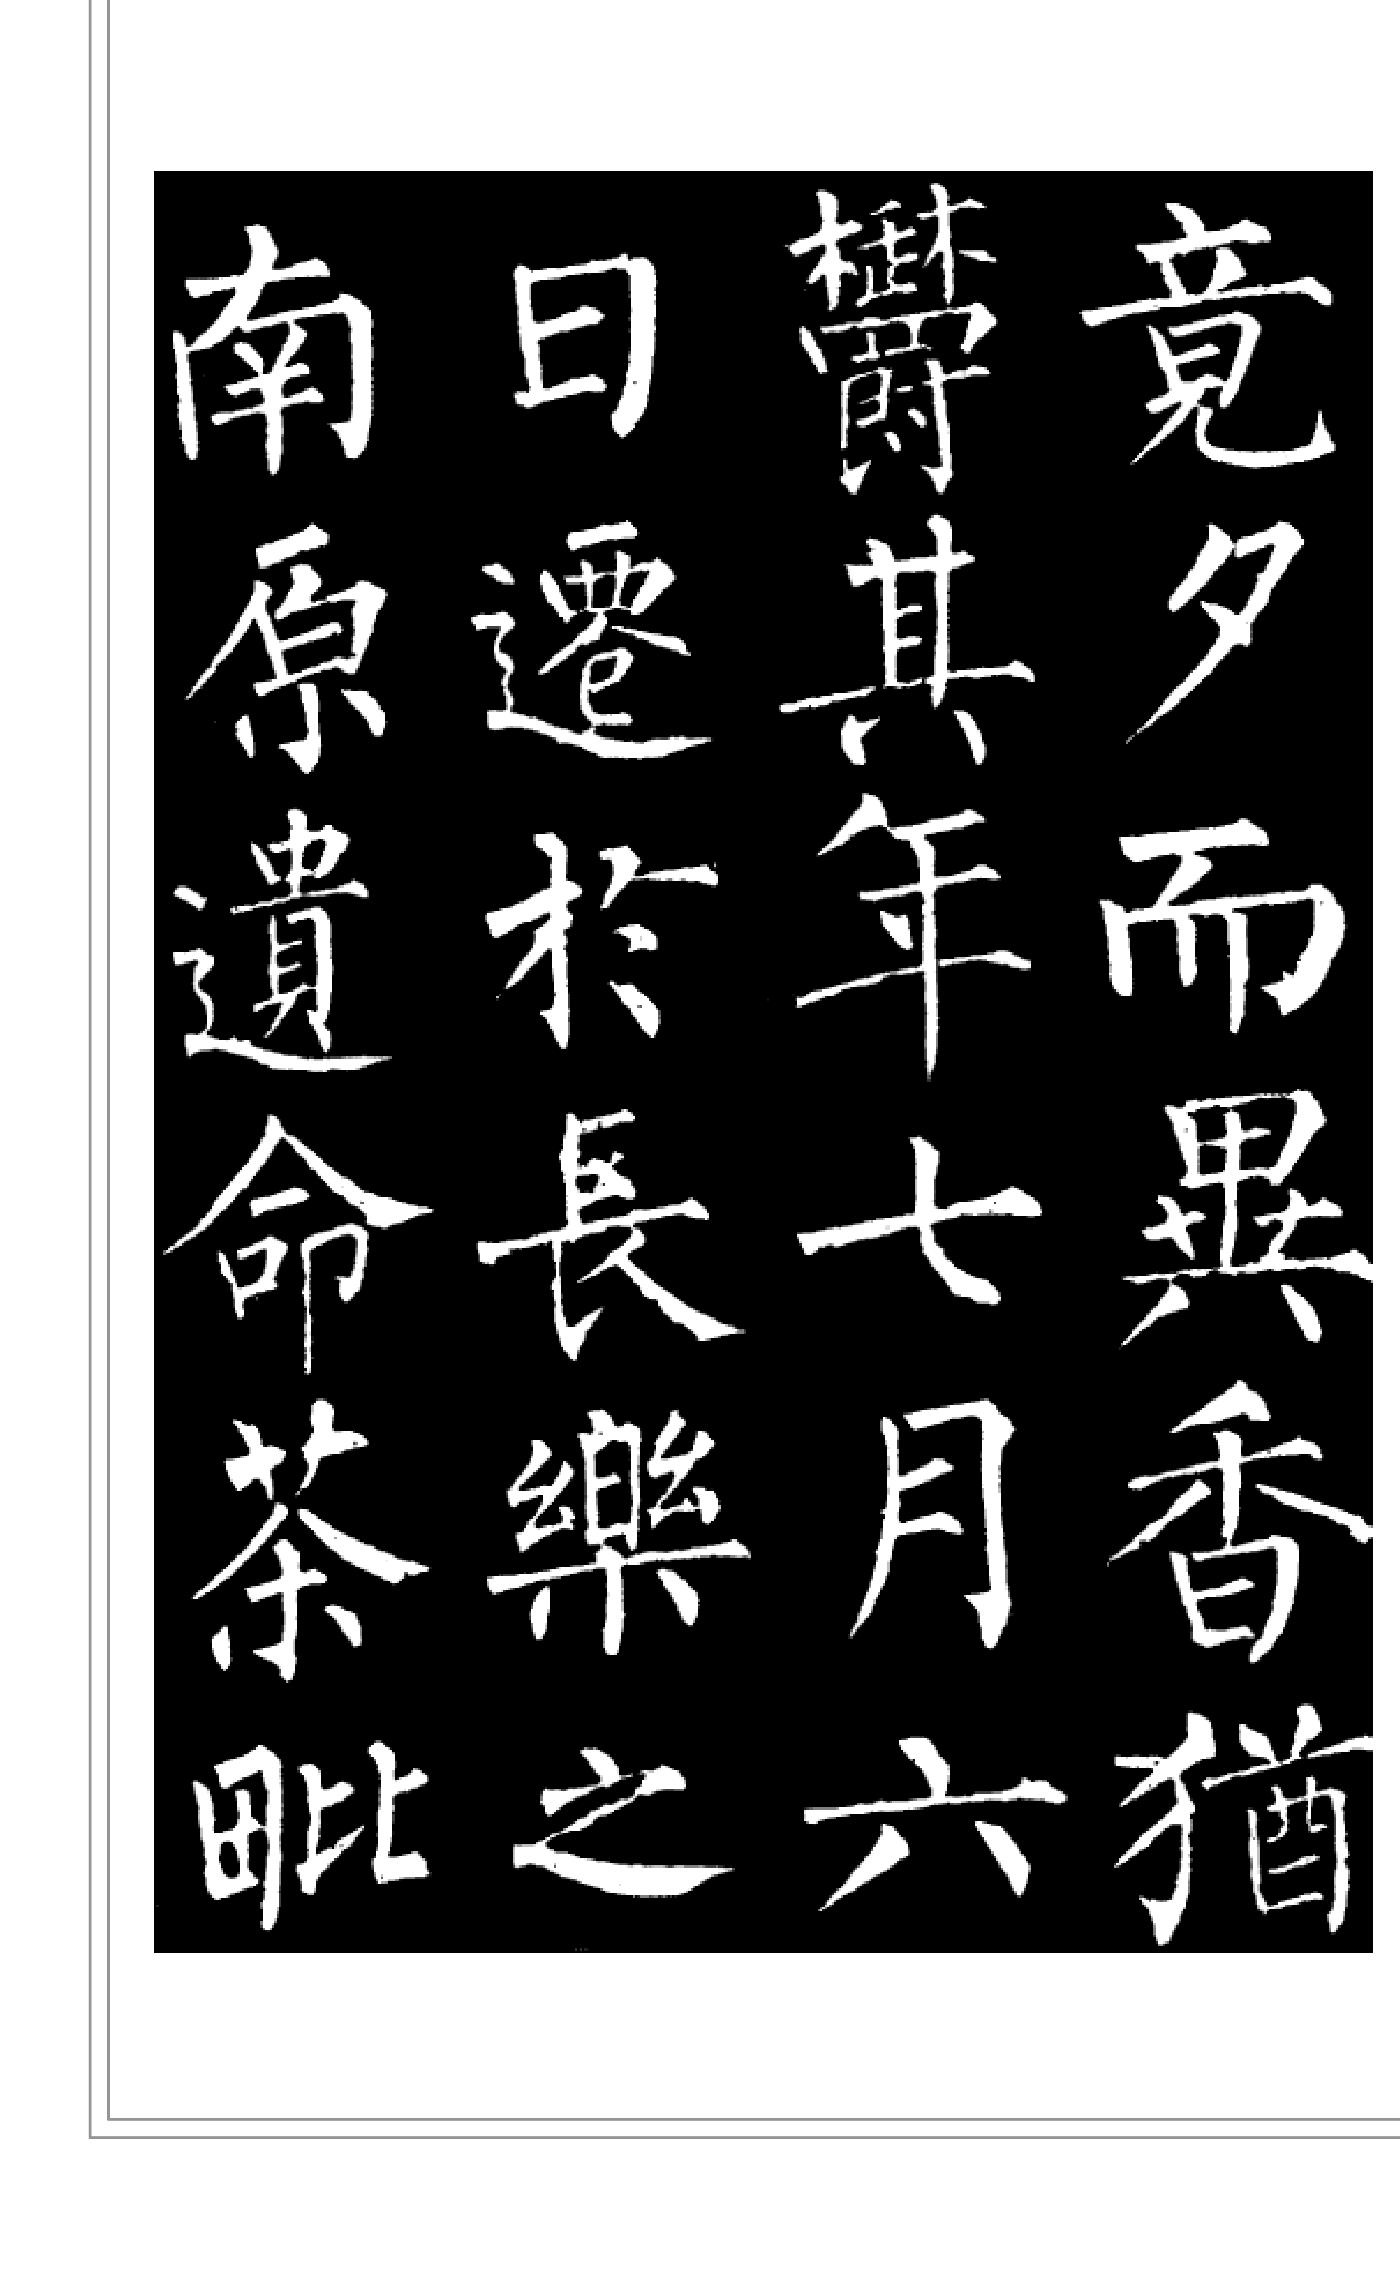 竟夕而異香猶
欝其年七月六
日遷於長樂之
南原遺命荼毗